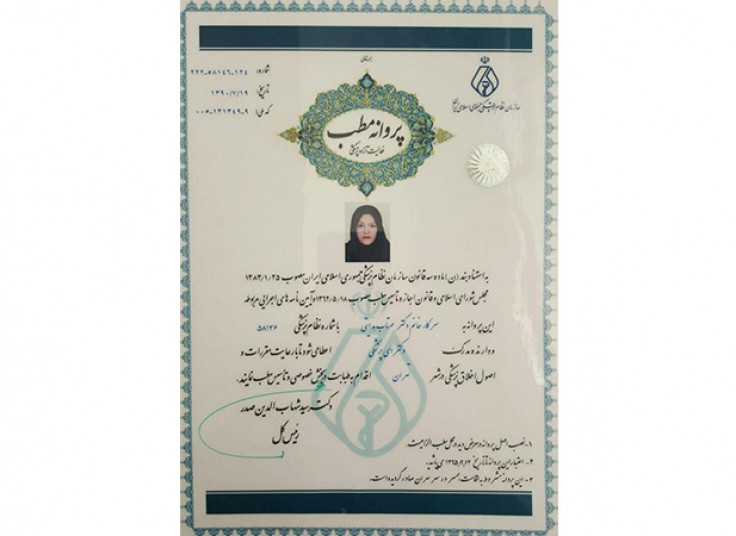 شماره: ۲۲۲-۵۸۱۴۶-۱۲۴
تاریخ: ۱۳۹۰/۷/۱۹
کد ملی: ۰۰۵-۱۳۱۳۴۹-۹
سازمان نظام پزشکی جمهوری اسلامی ایران
پروانه مطب
فعالیت آزاد پزشکی
به استناد بند (ن) ماده سه قانون سازمان نظام پزشکی جمهوری اسلامی ایران مصوب ۱۳۸۳/۱/۲۵
مجلس شورای اسلامی و قانون اجازه تاسیس مطب مصوب ۱۳۶۲/۵/۱۸ و آیین نامه های اجرایی مربوطه
این پروانه به سرکار خانم دکتر مهتاب با شماره نظام پزشکی ۵۸۱۴۶
و دارنده مدرک دکترای پزشکی اعطا می شود تا با رعایت مقررات و
اصول اخلاق پزشکی در شهر تهران اقدام به طبابت در بخش خصوصی و تاسیس مطب نمایند.
دکتر سید شهاب الدین صدر
رئیس کل
۱- نصب اصل پروانه در معرض دید در محل مطب الزامیست.
۲- اعتبار این پروانه تا تاریخ می باشد.
۳- این پروانه مشروط به اقامت در شهر تهران صادر گردیده است.